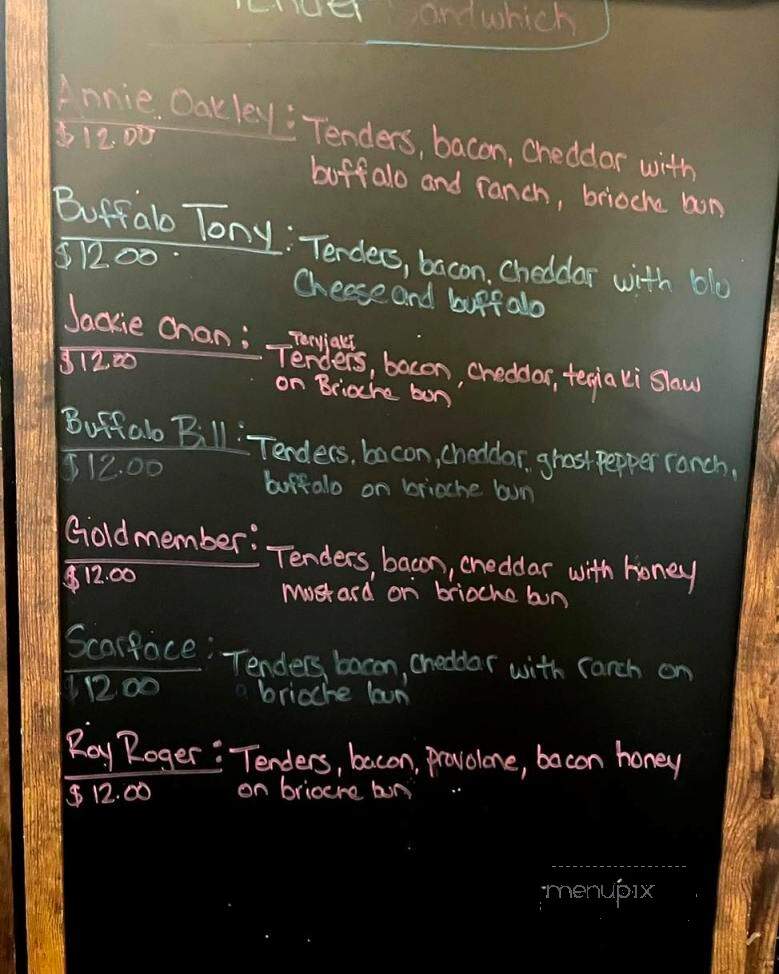 Tender Sandwhich
Annie Oakley: Tenders, bacon, Cheddar with
$12.00
buffalo and ranch, brioche bun
Buffalo Tony: Tenders, bacon, Cheddar with blu
$12.00
Cheese and buffalo
Jackie Chan: Teryjaki
Tenders, bacon, cheddar, teriaki Slaw
$12.00
on Brioche bun
Buffalo Bill: Tenders, bacon, cheddar, ghost pepper ranch,
$12.00
buffalo on brioche bun
Goldmember: Tenders, bacon, cheddar with honey
$12.00
mustard on brioche bun
Scarface: Tenders, bacon, cheddar with ranch on
$12.00
a brioche bun
Roy Roger: Tenders, bacon, provolone, bacon honey
$12.00
on brioche bun
menupix